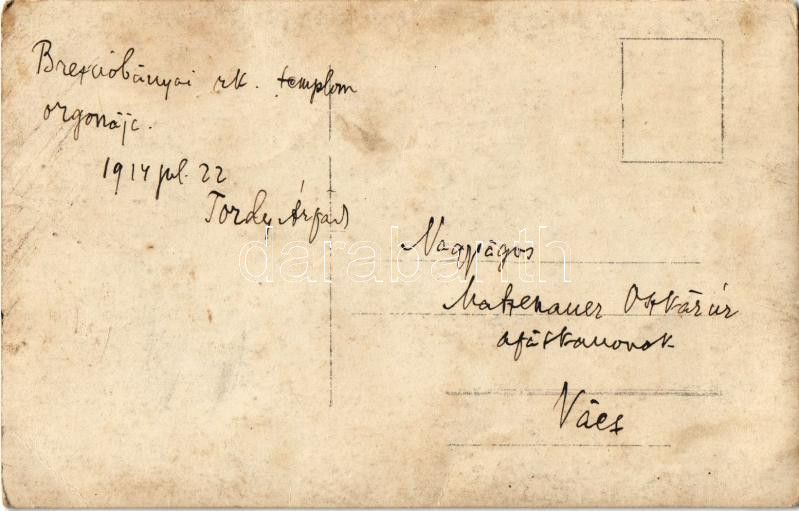 Breznóbányai rk. templom
orgonája.
1914 jul. 22
Tordy Árpád
Nagyságos
Matzenauer Oszkár úr
apátkanonok
Vácz
darabanth